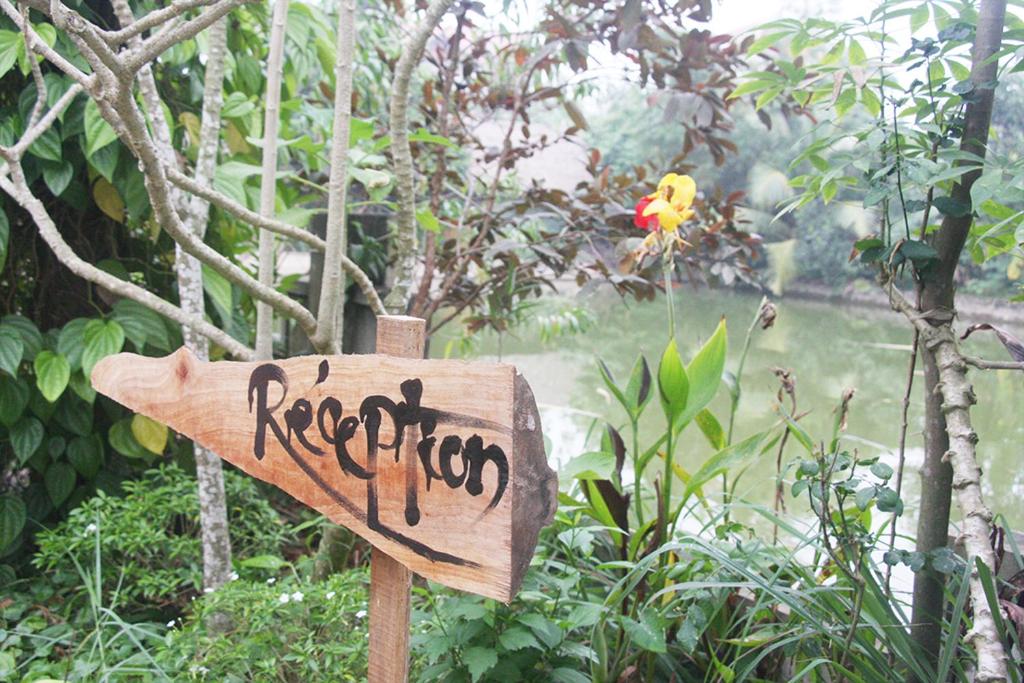 Réception